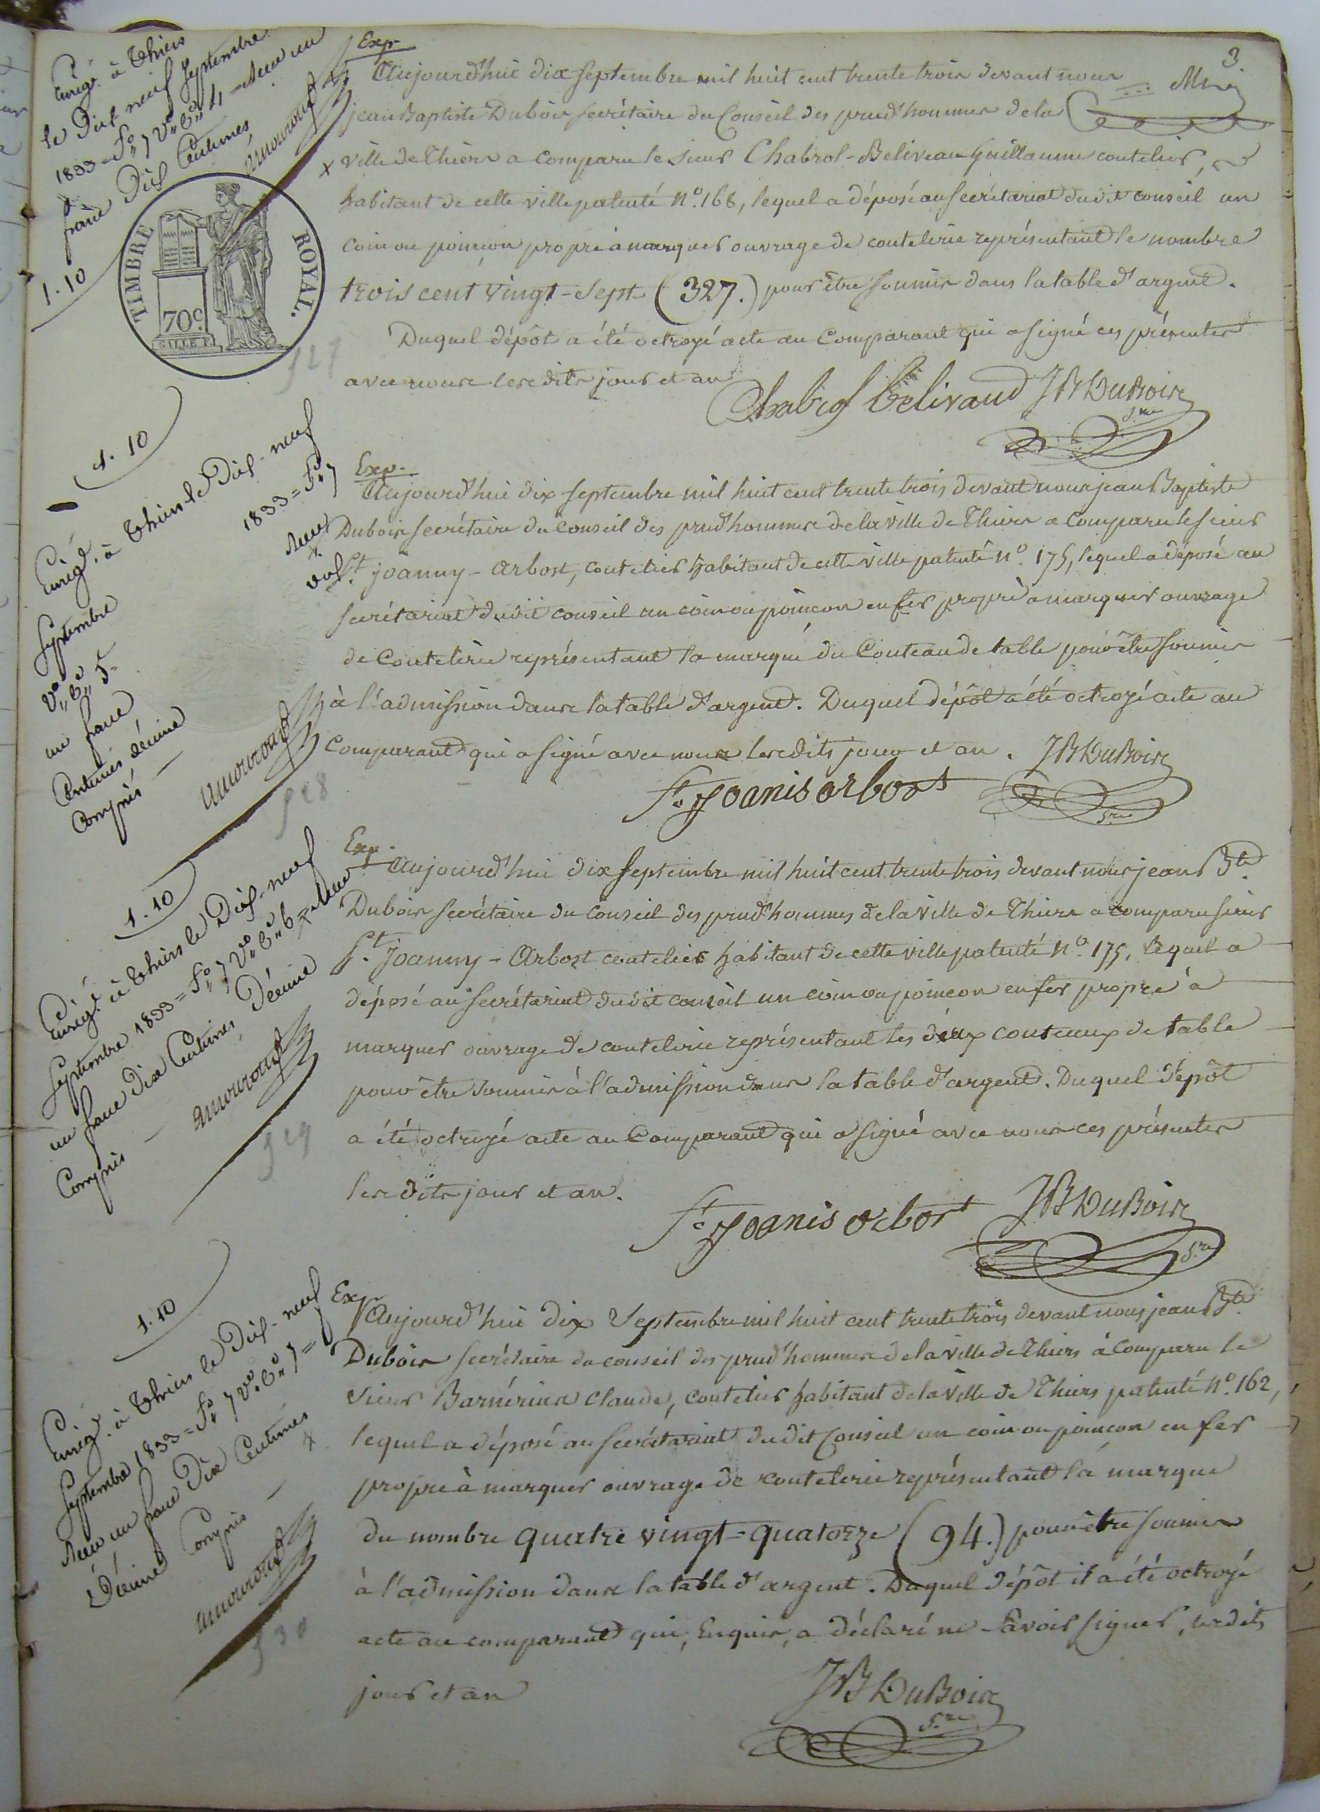 3.
Exp.
Aujourd'hui dix septembre mil huit cent trente trois devant nous
jean Baptiste Dubois secrétaire du Conseil des prud'hommes de la
ville de Thiers a comparu le sieur Chabrol-Beliveau guillaume coutelier,
habitant de cette ville patenté N.o 168, lequel a déposé au secrétariat dudit conseil un
coin ou poinçon propre à marquer ouvrage de coutelerie représentant le nombre
trois cent vingt-sept (327.) pour être soumis dans la table d'argent.
Duquel dépôt a été octroyé acte au Comparant qui a signé ces présentes
avec nous lesdits jour et an
Chabrol beliraud JB DuBois
S.re
Enrég. à Thiers
le Dix neuf Septembre
1833 = F.o 7 V.o C.e 4 - Reçu un
franc Dix Centimes
1.10
TIMBRE ROYAL.
70c.
527
Exp.
Aujourd'hui dix septembre mil huit cent trente trois devant nous jean Baptiste
Dubois secrétaire du conseil des prud'hommes de la ville de Thiers a comparu le sieur
St. joanny-Arbost, coutelier habitant de cette ville patenté N.o 175, lequel a déposé au
secrétariat dudit conseil un coin ou poinçon en fer propre à marquer ouvrage
de Coutelerie représentant la marque du Couteau de table pour être soumis
à l'admission dans la table d'argent. Duquel dépôt a été octroyé acte au
Comparant qui a signé avec nous lesdits jour et an. JB DuBois
St. joanis arbost
S.re
1.10
Enrég. à Thiers le Dix-neuf
Septembre 1833 = F.o 7
V.o C.e 5 Reçu
un franc Dix
Centimes décime
Compris
528
Exp.
Aujourd'hui dix septembre mil huit cent trente trois devant nous jean Bte.
Dubois secrétaire du Conseil des prud'hommes de la ville de Thiers a comparu sieur
St. Joanny-Arbost coutelier habitant de cette ville patenté N.o 175, lequel a
déposé au secrétariat dudit conseil un coin ou poinçon en fer propre à
marquer ouvrage de coutelerie représentant les deux couteaux de table
pour être soumis à l'admission dans la table d'argent. Duquel dépôt
a été octroyé acte au Comparant qui a signé avec nous ces présentes
lesdits jour et an.
St. joanis arbost JB DuBois
S.re
1.10
Enrég. à Thiers le Dix-neuf
Septembre 1833 = F.o 7 V.o C.e 6 Reçu
un franc Dix Centimes, Décime
Compris
529
Exp.
Aujourd'hui dix Septembre mil huit cent trente trois devant nous jean Bte.
Dubois secrétaire du conseil des prud'hommes de la ville de Thiers à Comparu le
sieur Barnérias Claude, Coutelier habitant de la ville de Thiers patenté N.o 162,
lequel a déposé au secrétariat dudit Conseil un coin ou poinçon en fer
propre à marquer ouvrage de coutelerie représentant la marque
du nombre quatre vingt-quatorze (94.) pour être soumis
à l'admission dans la table d'argent. Duquel dépôt il a été octroyé
acte au comparant qui, Enquis, a déclaré ne savoir signer, lesdits
jour et an
JB DuBois
S.re
1.10
Enrég. à Thiers le Dix-neuf
Septembre 1833 = F.o 7 V.o C.e 7 =
Reçu un franc Dix Centimes
Décime Compris
530